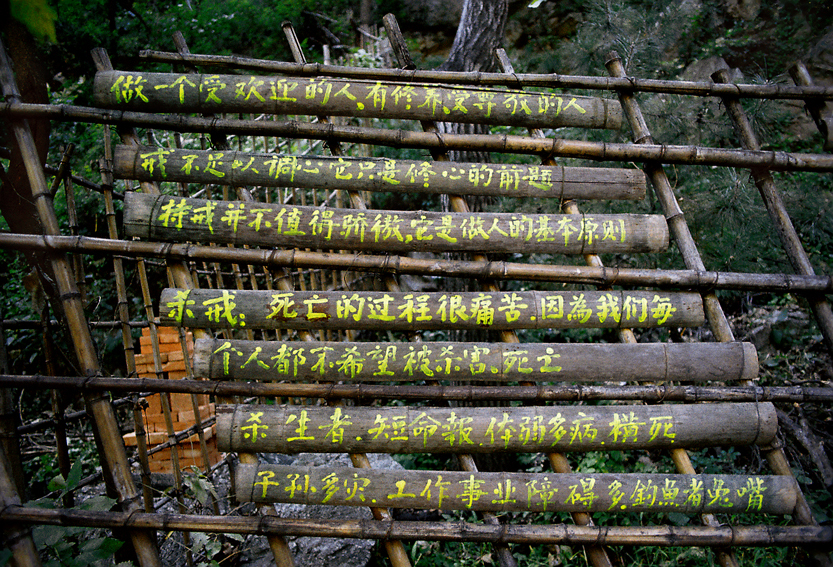 做一个受欢迎的人,有修养,受尊敬的人
戒不足以调心它只是修心的前题
持戒并不值得骄傲,它是做人的基本原则
杀戒:死亡的过程很痛苦.因為我们每
个人都不希望被杀害.死亡
杀生者.短命報.体弱多病.横死
子孙多灾.工作事业障碍多.釣魚者兔嘴